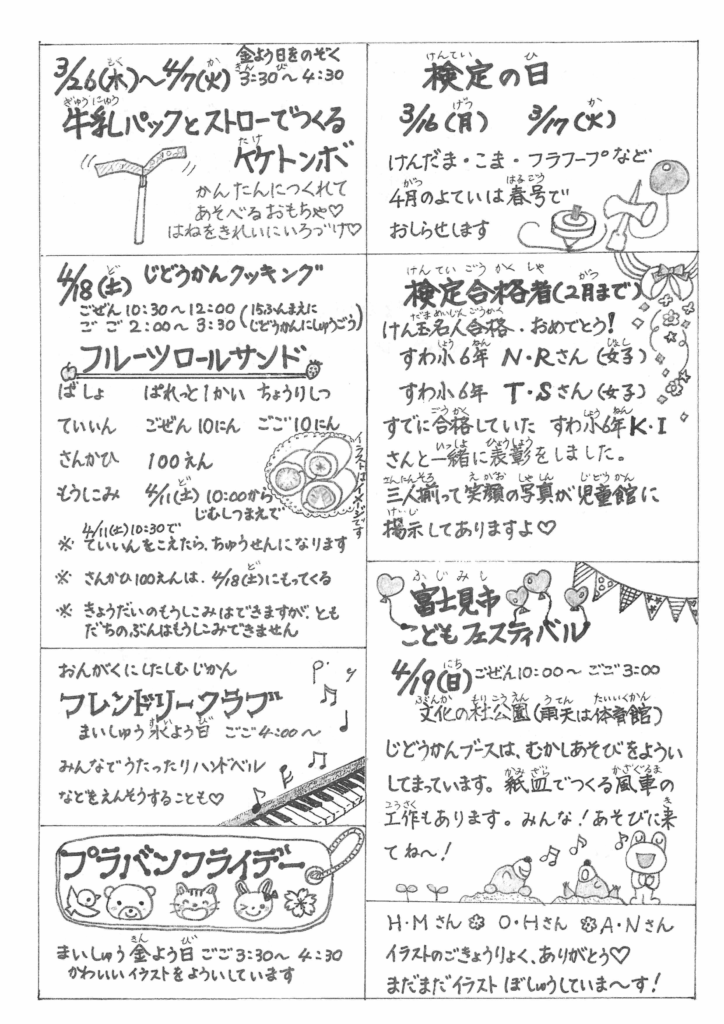 3/26(水)～4/7(火) 金よう日をのぞく
3:30～4:30
牛乳パックとストローでつくる
ケケトンボ
かんたんにつくれて
あそべるおもちゃ♡
はねをきれいにいろづけ♡
4/18(土) じどうかんクッキング
ごぜん10:30～12:00(15ふんまえに
ごご2:00～3:30 じどうかんにしゅうごう)
フルーツロールサンド
ばしょ ぱれっと1かい ちょうりしつ
ていいん ごぜん10にん ごご10にん
さんかひ 100えん
もうしこみ 4/11(土) 10:00から
じむしつまえで
イラストはイメージです
4/11(土)10:30で
※ ていいんをこえたら、ちゅうせんになります
※ さんかひ100えんは、4/18(土)にもってくる
※ きょうだいのもうしこみはできますが、とも
だちのぶんはもうしこみできません
おんがくにしたしむじかん
フレンドリークラブ
まいしゅう水よう日 ごご4:00～
みんなでうたったりハンドベル
などをえんそうすることも♡
プラバンフライデー
まいしゅう金よう日 ごご3:30～4:30
かわいいイラストをよういしています
検定の日
3/16(月) 3/17(火)
けんだま・こま・フラフープなど
4月のよていは春号で
おしらせします
検定合格者(2月まで)
けん玉名人合格・おめでとう!
すわ小6年 N・Rさん(女子)
すわ小6年 T・Sさん(女子)
すでに合格していた すわ小6年K・I
さんと一緒に表彰をしました。
三人揃って笑顔の写真が児童館に
掲示してありますよ♡
富士見市
こどもフェスティバル
4/19(日)ごぜん10:00～ごご3:00
文化の杜公園(雨天は体育館)
じどうかんブースは、むかしあそびをようい
してまっています。紙皿でつくる風車の
工作もあります。みんな!あそびに来
てね～!
H・Mさん ✽ O・Hさん ✽A・Nさん
イラストのごきょうりょく、ありがとう♡
まだまだイラストぼしゅうしていま～す!